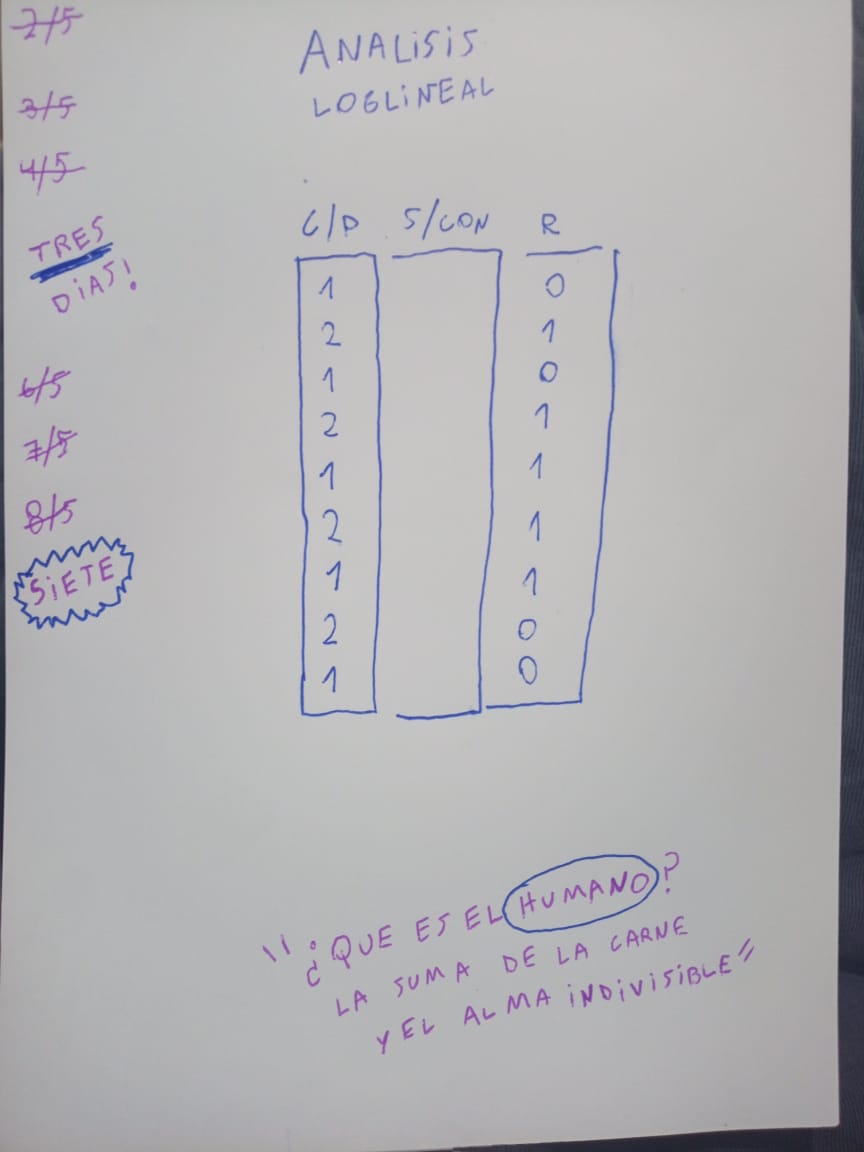 2/5
3/5
4/5
TRES
DiAS!
6/5
7/5
8/5
SiETE
ANALiSiS
LOGLiNEAL
C/D S/CON R
1 0
2 1
1 0
2 1
1 1
2 1
1 1
2 0
1 0
"¿QUE ES EL HUMANO?
LA SUMA DE LA CARNE
Y EL ALMA iNDiViSiBLE"